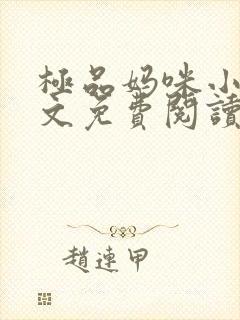 極品妈咪小
文免費閱讀
趙連甲